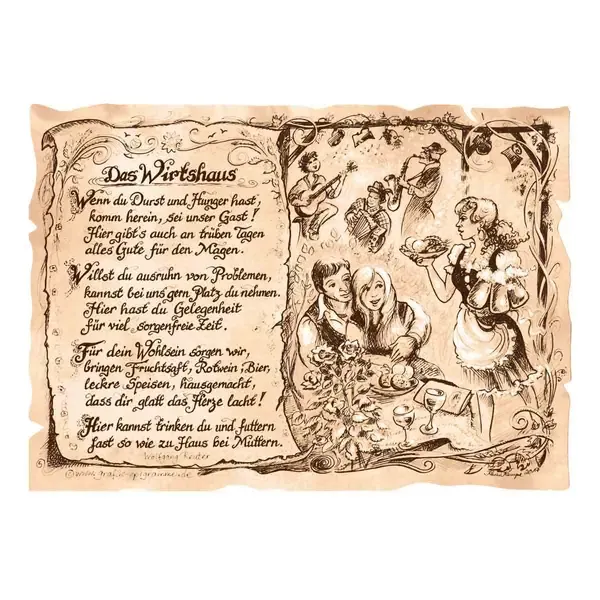 Das Wirtshaus
Wenn du Durst und Hunger hast,
komm herein, sei unser Gast!
Hier gibt's auch an trüben Tagen
alles Gute für den Magen.
Willst du ausruhn von Problemen,
kannst bei uns gern Platz du nehmen.
Hier hast du Gelegenheit
für viel sorgenfreie Zeit.
Für dein Wohlsein sorgen wir,
bringen Fruchtsaft, Rotwein, Bier,
leckre Speisen, hausgemacht,
dass dir glatt das Herze lacht!
Hier kannst trinken du und futtern
fast so wie zu Haus bei Muttern.
Wolfgang Reuter